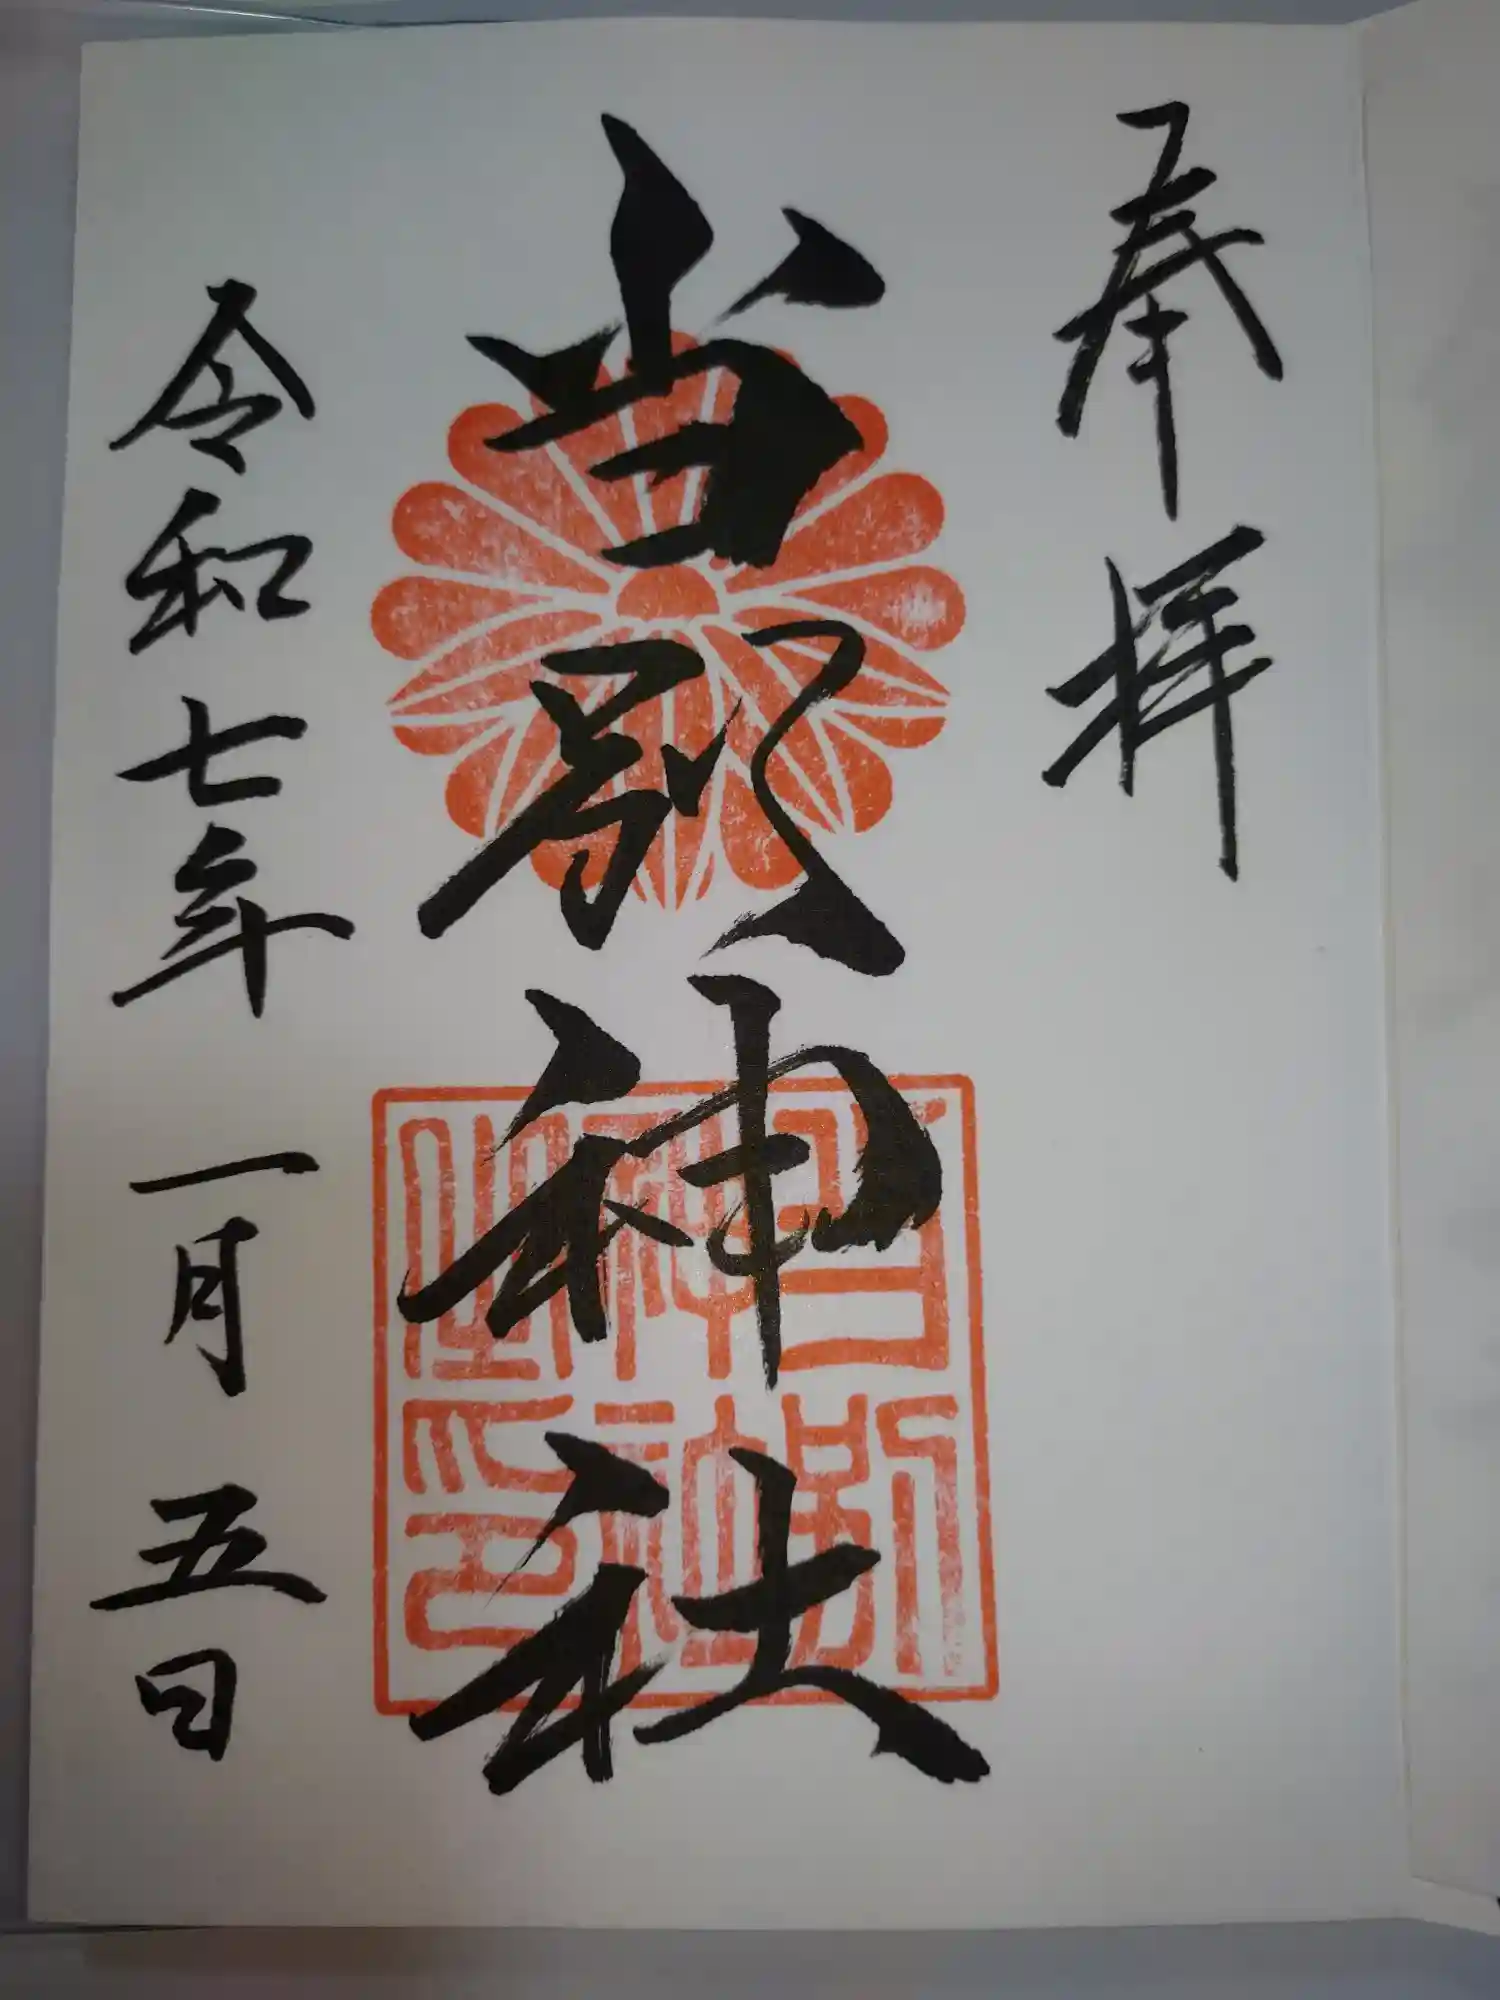 奉拝
当別神社
当別神社之印
令和七年一月五日